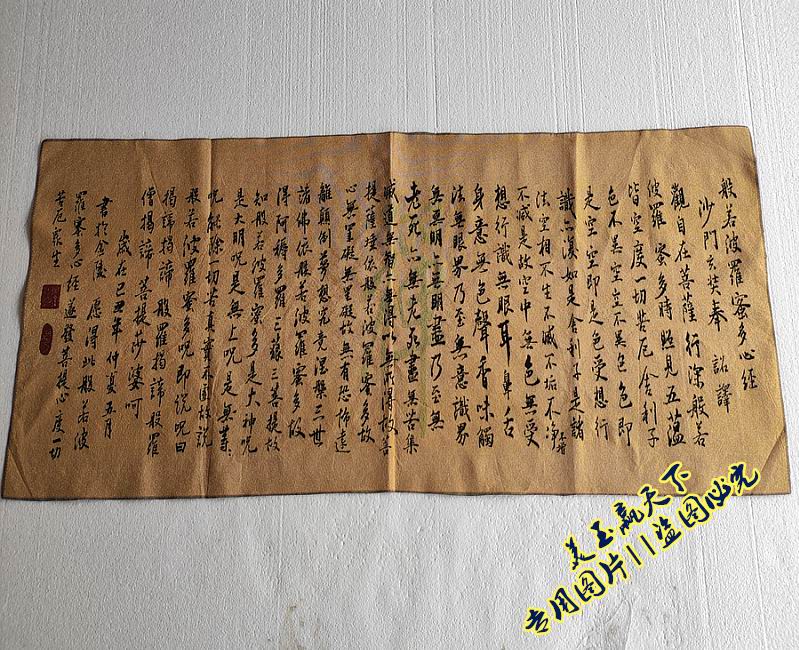 般若波羅蜜多心經
沙門玄奘奉 詔譯
觀自在菩薩行深般若
波羅蜜多時照見五蘊
皆空度一切苦厄舍利子
色不異空空不異色色即
是空空即是色受想行
識亦復如是舍利子是諸
法空相不生不滅不垢不淨不增
不減是故空中無色無受
想行識無眼耳鼻舌
身意無色聲香味觸
法無眼界乃至無意識界
無無明亦無無明盡乃至無
老死亦無老死盡無苦集
滅道無智亦無得以無所得故菩
提薩埵依般若波羅蜜多故
心無罣礙無罣礙故無有恐怖遠
離顛倒夢想究竟涅槃三世
諸佛依般若波羅蜜多故
得阿耨多羅三藐三菩提故
知般若波羅蜜多是大神咒
是大明咒是無上咒是無等
咒能除一切苦真實不虛故說
般若波羅蜜多咒即說咒曰
揭諦揭諦 般羅揭諦 般羅
僧揭諦 菩提莎婆訶
歲在己丑年仲夏五月
書於金陵 愿得此般若波
羅蜜多心經遂發菩提心度一切
苦厄眾生
美玉贏天下
专用图片||盗图必究